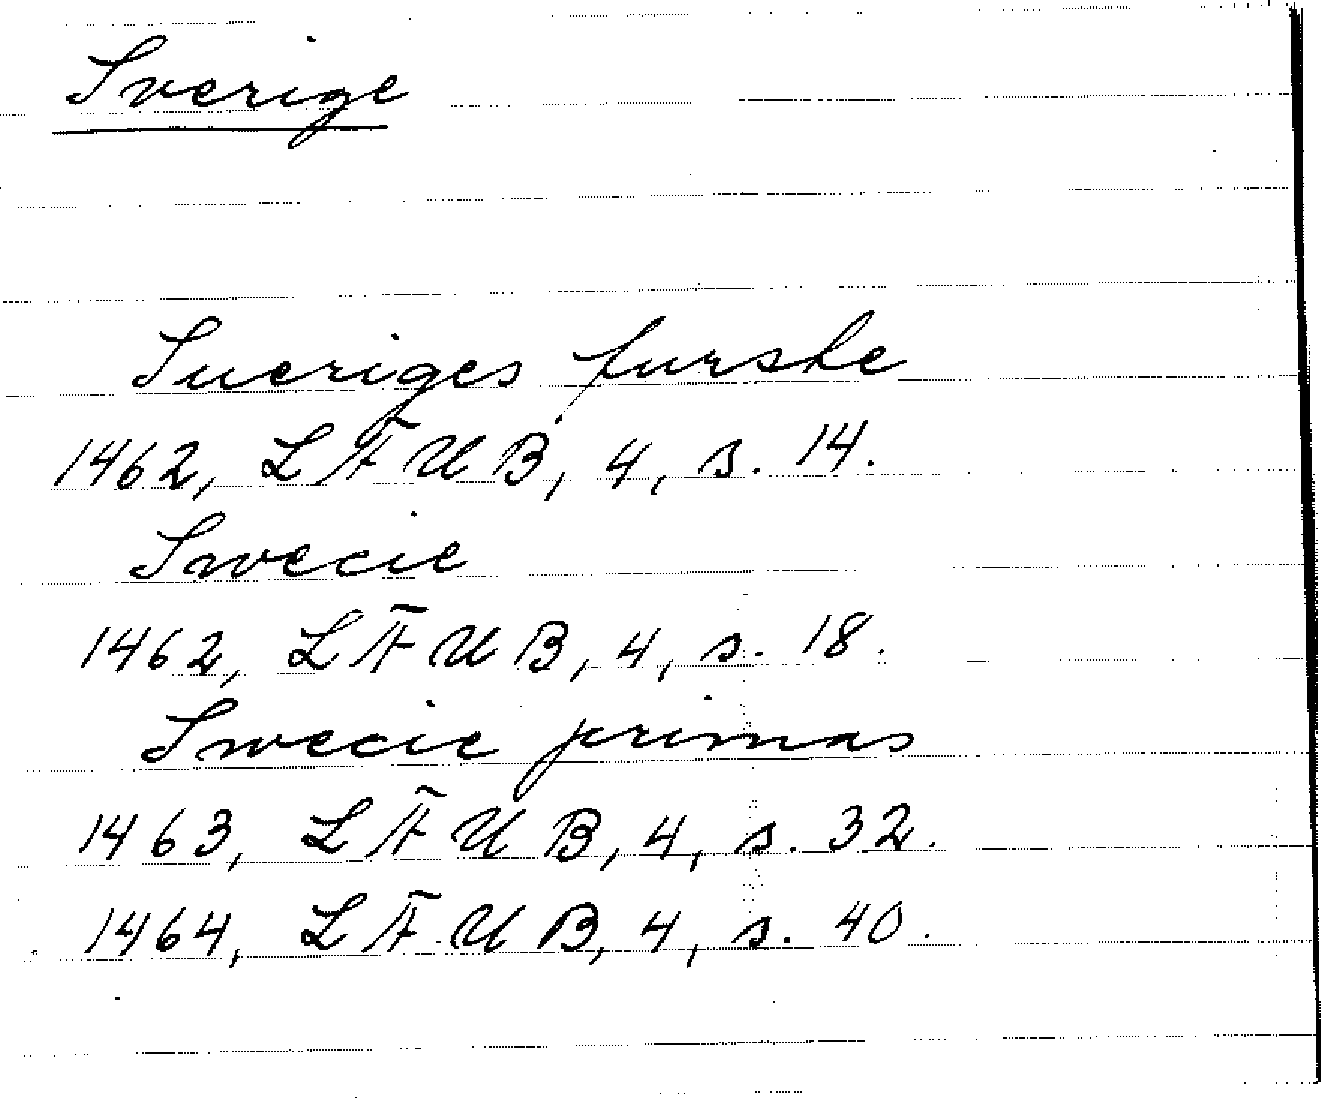 Sverige
Sueriges furste
1462, LFUB, 4, s. 14.
Swecie
1462, LFUB, 4, s. 18.
Swecie primas
1463, LFUB, 4, s. 32.
1464, LFUB, 4, s. 40.